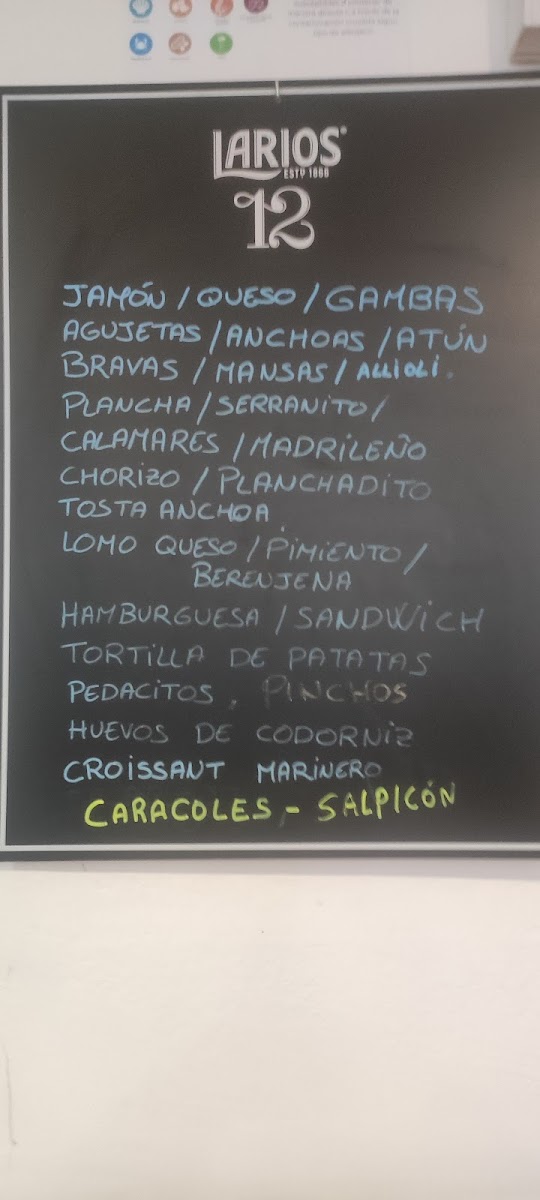 LARIOS
ESTD 1866
12
JAMÓN / QUESO / GAMBAS
AGUJETAS / ANCHOAS / ATÚN
BRAVAS / MANSAS / ALLIOLI.
PLANCHA / SERRANITO /
CALAMARES / MADRILEÑO
CHORIZO / PLANCHADITO
TOSTA ANCHOA
LOMO QUESO / PIMIENTO /
BERENJENA
HAMBURGUESA / SANDWICH
TORTILLA DE PATATAS
PEDACITOS, PINCHOS
HUEVOS DE CODORNIZ
CROISSANT MARINERO
CARACOLES - SALPICÓN